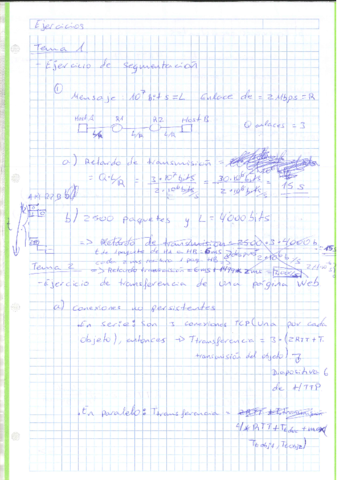 Ejercicios
Tema 1
- Ejercicio de segmentación
①
Mensaje 10⁷ bits = L Enlace de = 2 Mbps = R
Host A R1 R2 Host B
L/R L/R L/R
Q enlaces = 3
a) Retardo de transmisión =
= Q·L/R = 3·10⁷ bits / 2·10⁶ bits/s = 30·10⁶ bits / 2·10⁶ bits/s = 15 s
b) 2500 paquetes y L = 4000 bits
=> Retardo de transmisión = 2500·3·4000 b
Tema 2
- Ejercicio de transferencia de una página Web
a) conexiones no persistentes.
En serie: son 3 conexiones TCP (una por cada
objeto), entonces → Ttransferencia = 3·(2RTT + T.
transmisión del objeto)
Diapositiva 6
de HTTP
· En paralelo: Ttransferencia =
4·RTT +